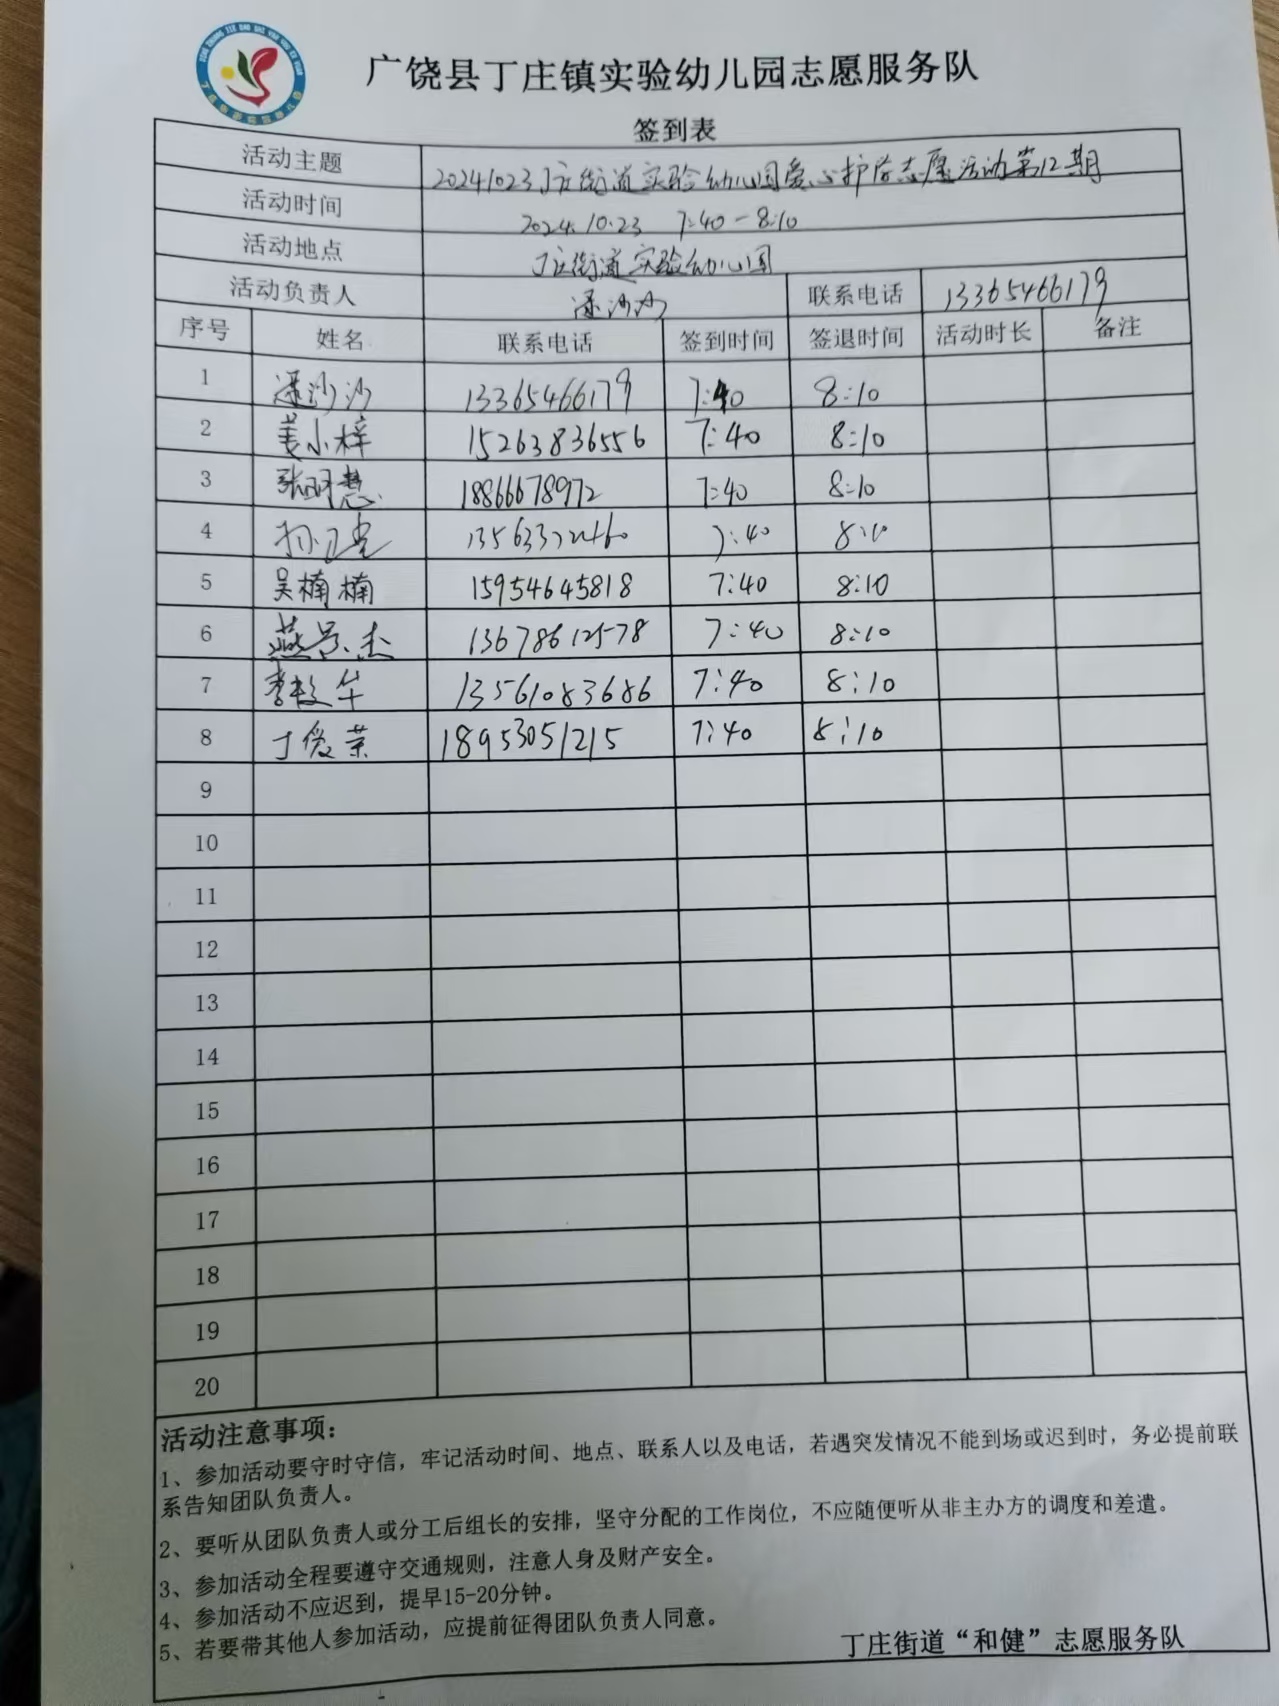 广饶县丁庄镇实验幼儿园志愿服务队
签到表
活动主题 20241023丁庄街道实验幼儿园爱心护学志愿活动第12期
活动时间 2024.10.23 7:40-8:10
活动地点 丁庄街道实验幼儿园
活动负责人 沙沙 联系电话 13365466179
序号 姓名 联系电话 签到时间 签退时间 活动时长 备注
1 沙沙 13365466179 7:40 8:10
2 姜小梓 15263836556 7:40 8:10
3 张明慧 18866678972 7:40 8:10
4 7:40 8:10
5 吴楠楠 15954645818 7:40 8:10
6 燕景杰 13678612578 7:40 8:10
7 李敏华 13561083686 7:40 8:10
8 丁俊荣 18953051215 7:40 8:10
9
10
11
12
13
14
15
16
17
18
19
20
活动注意事项：
1、参加活动要守时守信，牢记活动时间、地点、联系人以及电话，若遇突发情况不能到场或迟到时，务必提前联
系告知团队负责人。
2、要听从团队负责人或分工后组长的安排，坚守分配的工作岗位，不应随便听从非主办方的调度和差遣。
3、参加活动全程要遵守交通规则，注意人身及财产安全。
4、参加活动不应迟到，提早15-20分钟。
5、若要带其他人参加活动，应提前征得团队负责人同意。
丁庄街道“和健”志愿服务队